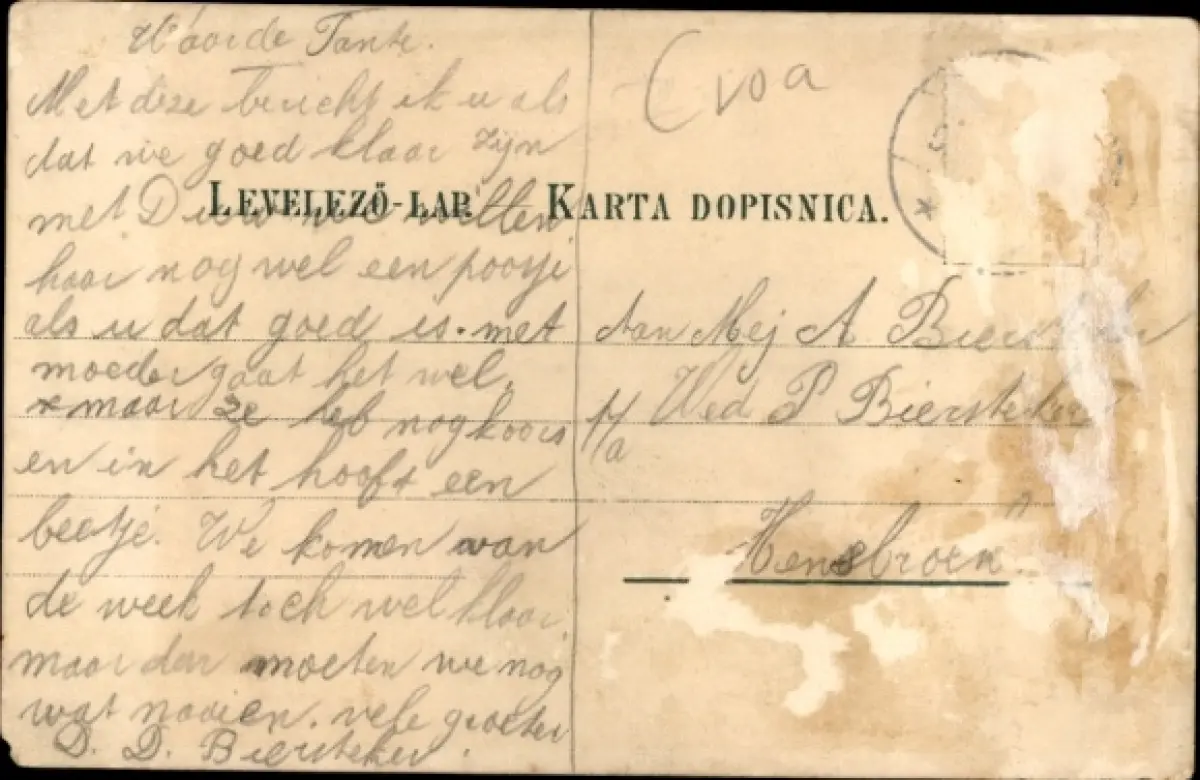 Waarde Tante.
Met deze bericht ik u als
dat we goed klaar zijn
met D willen
haar nog wel een pootje
als u dat goed is. met
moeder gaat het wel,
maar ze heb nog koors
en in het hooft een
beetje. We komen van
de week toch wel klaar,
maar dan moeten we nog
wat naaien. vele groeten
D. D. Biersteker.
LEVELEZŐ-LAP. KARTA DOPISNICA.
Aan Mej A. Biersteker
p/a Wed P Biersteker
Hensbroek